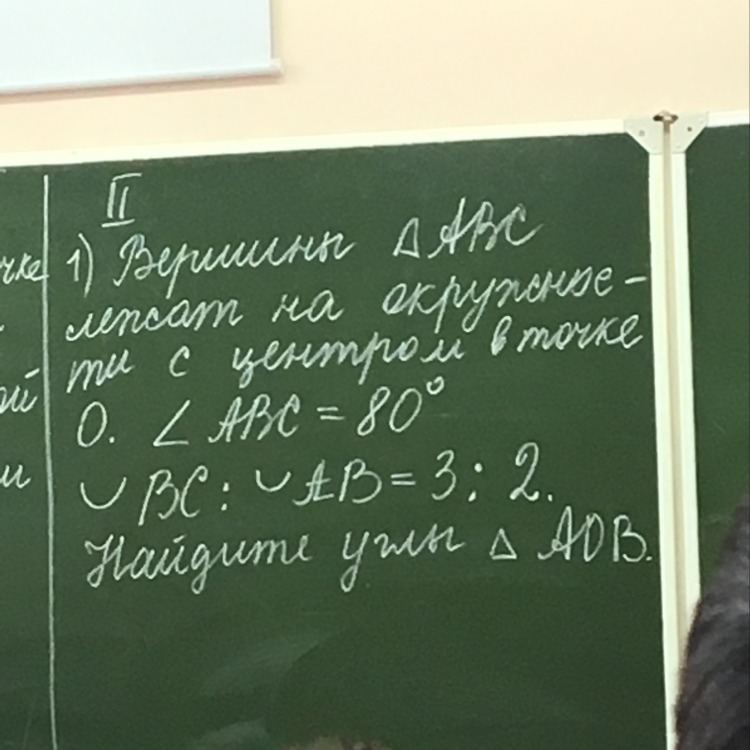 II
чке 1) Вершины △ ABC
лежат на окружнос-
ти с центром в точке
ой O. ∠ ABC = 80°
и ◡ BC : ◡ AB = 3 : 2.
Найдите углы △ AOB.